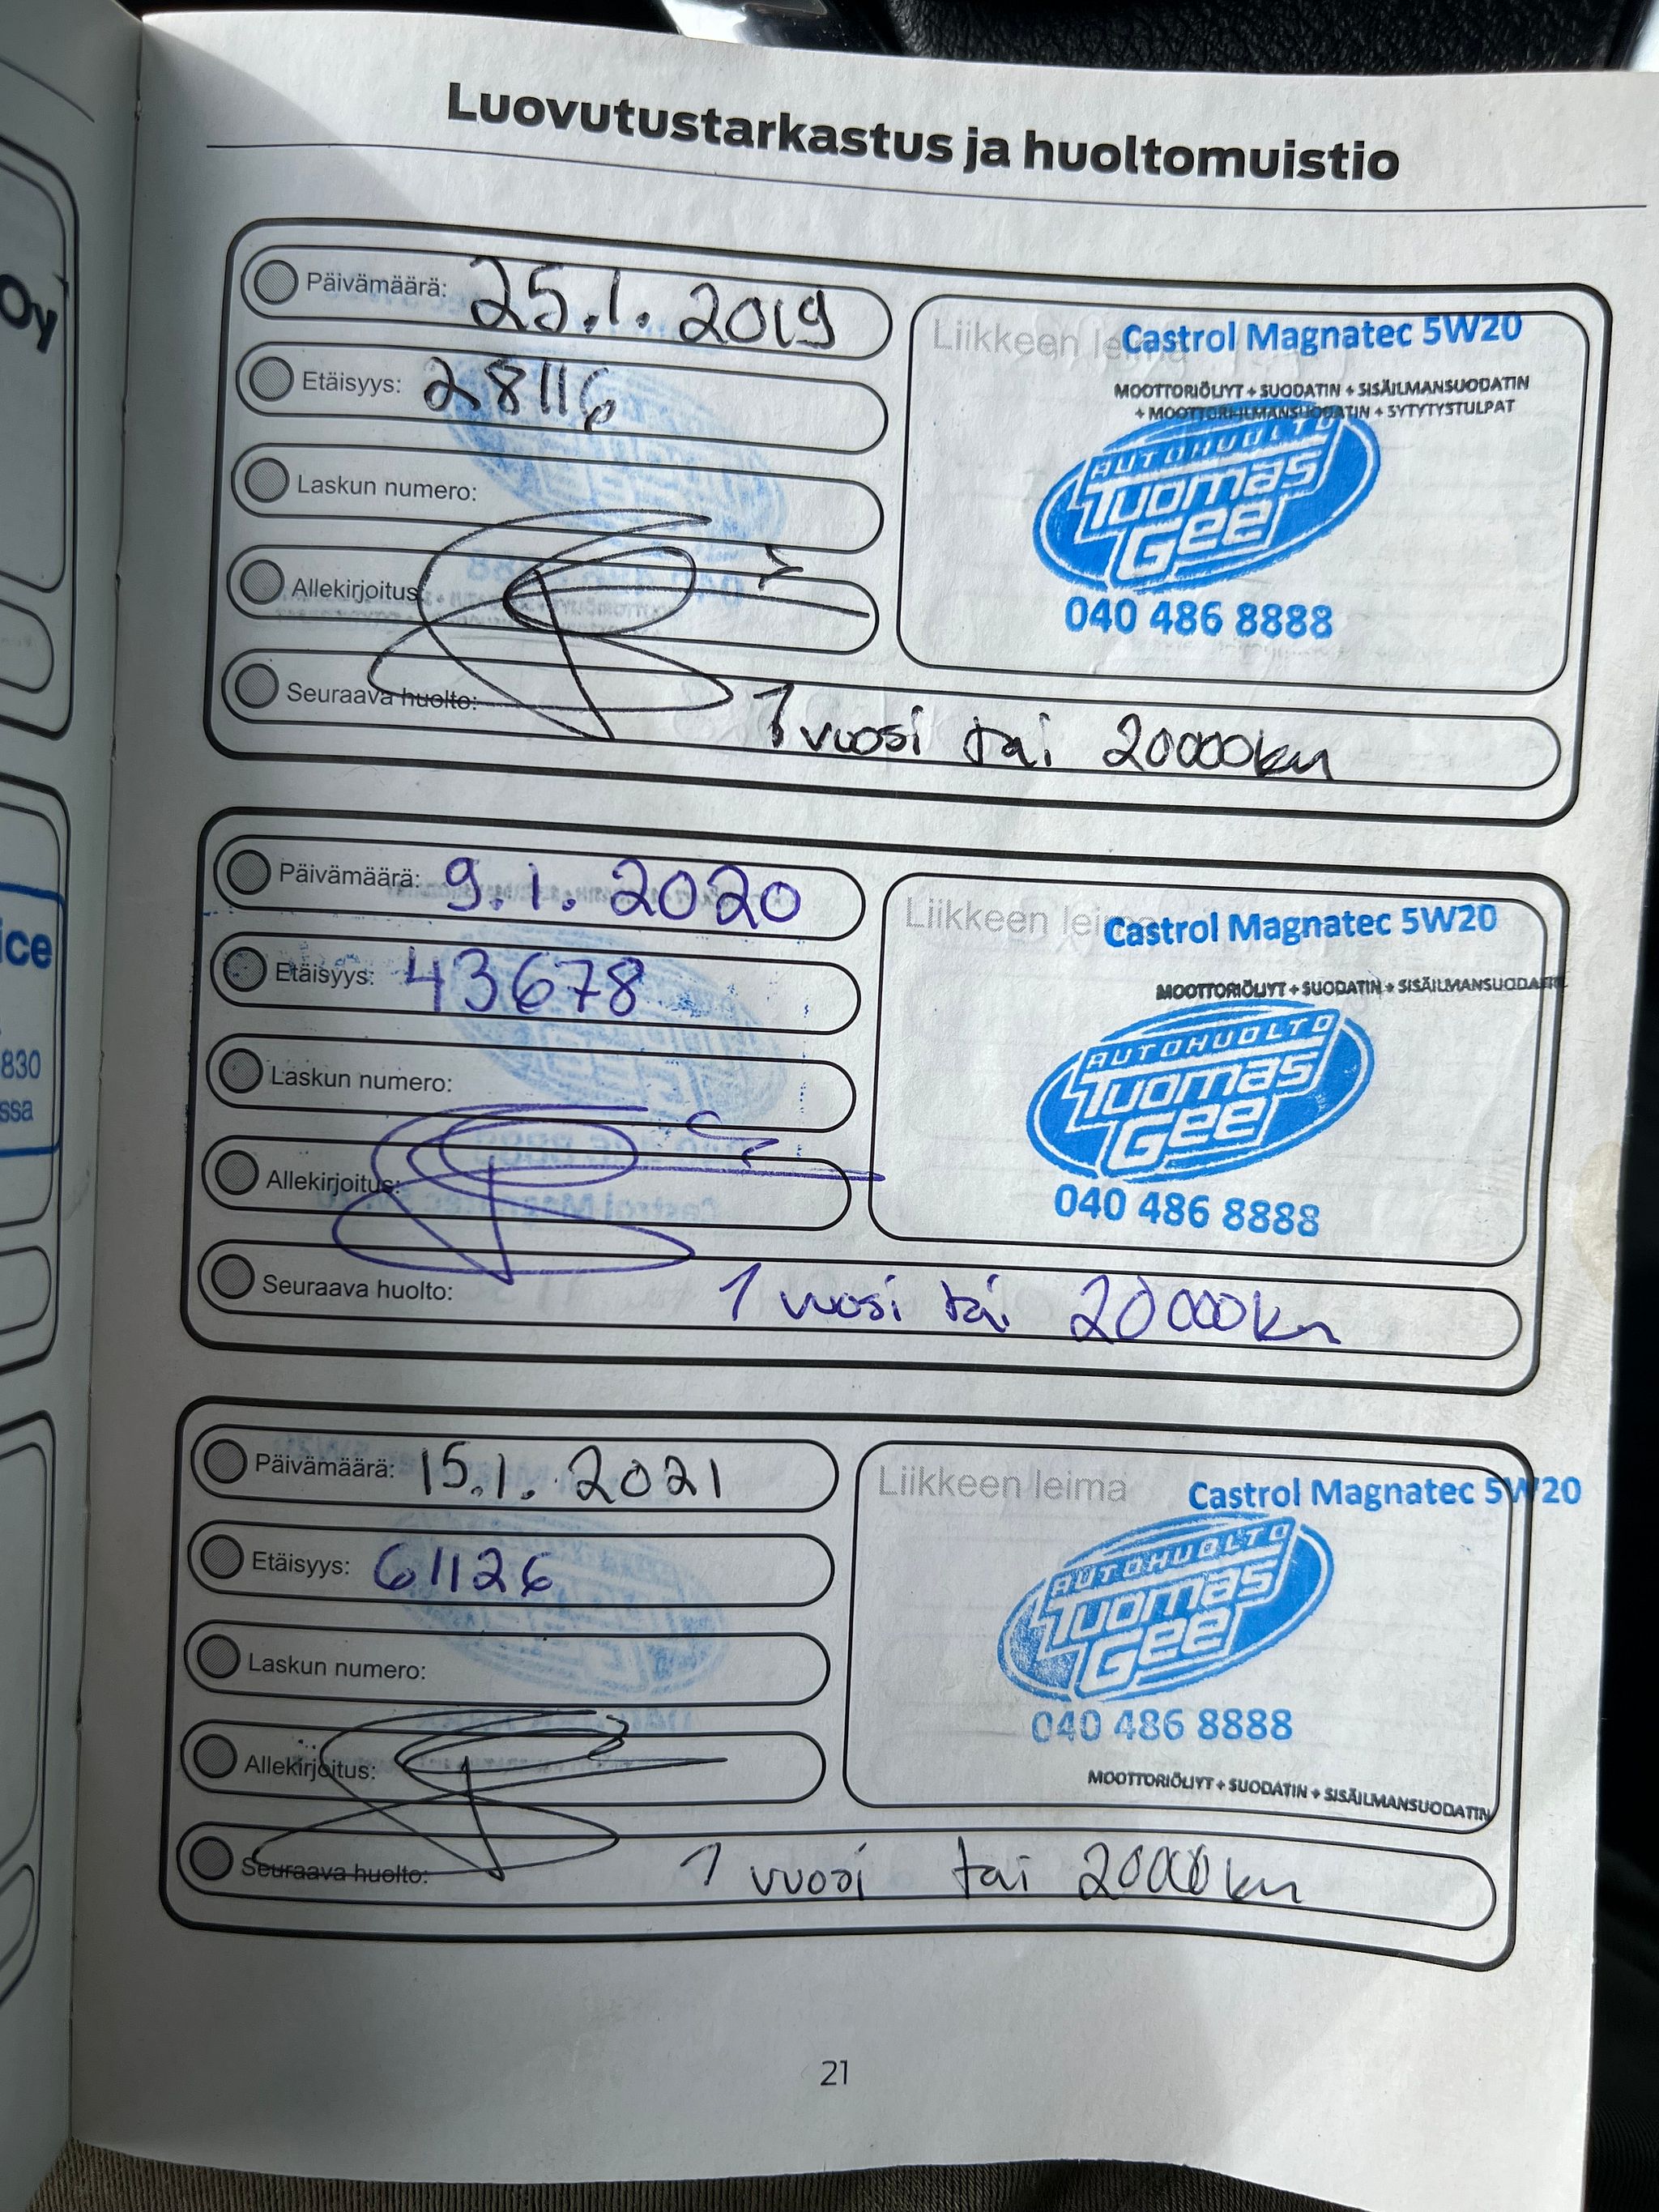 Oy
ice
830
ssa
Luovutustarkastus ja huoltomuistio
Päivämäärä: 25.1.2019
Etäisyys: 28116
Laskun numero:
Allekirjoitus:
Seuraava huolto: 1 vuosi tai 20000km
Liikkeen leima
Castrol Magnatec 5W20
MOOTTORIÖLJYT + SUODATIN + SISÄILMANSUODATIN
+ MOOTTORI-ILMANSUODATIN + SYTYTYSTULPAT
AUTOHUOLTO
Tuomas
Gee
040 486 8888
Päivämäärä: 9.1.2020
Etäisyys: 43678
Laskun numero:
Allekirjoitus:
Seuraava huolto: 1 vuosi tai 20000km
Liikkeen leima
Castrol Magnatec 5W20
MOOTTORIÖLJYT + SUODATIN + SISÄILMANSUODATIN
AUTOHUOLTO
Tuomas
Gee
040 486 8888
Päivämäärä: 15.1.2021
Etäisyys: 61126
Laskun numero:
Allekirjoitus:
Seuraava huolto: 1 vuosi tai 20000km
Liikkeen leima
Castrol Magnatec 5W20
AUTOHUOLTO
Tuomas
Gee
040 486 8888
MOOTTORIÖLJYT + SUODATIN + SISÄILMANSUODATIN
21